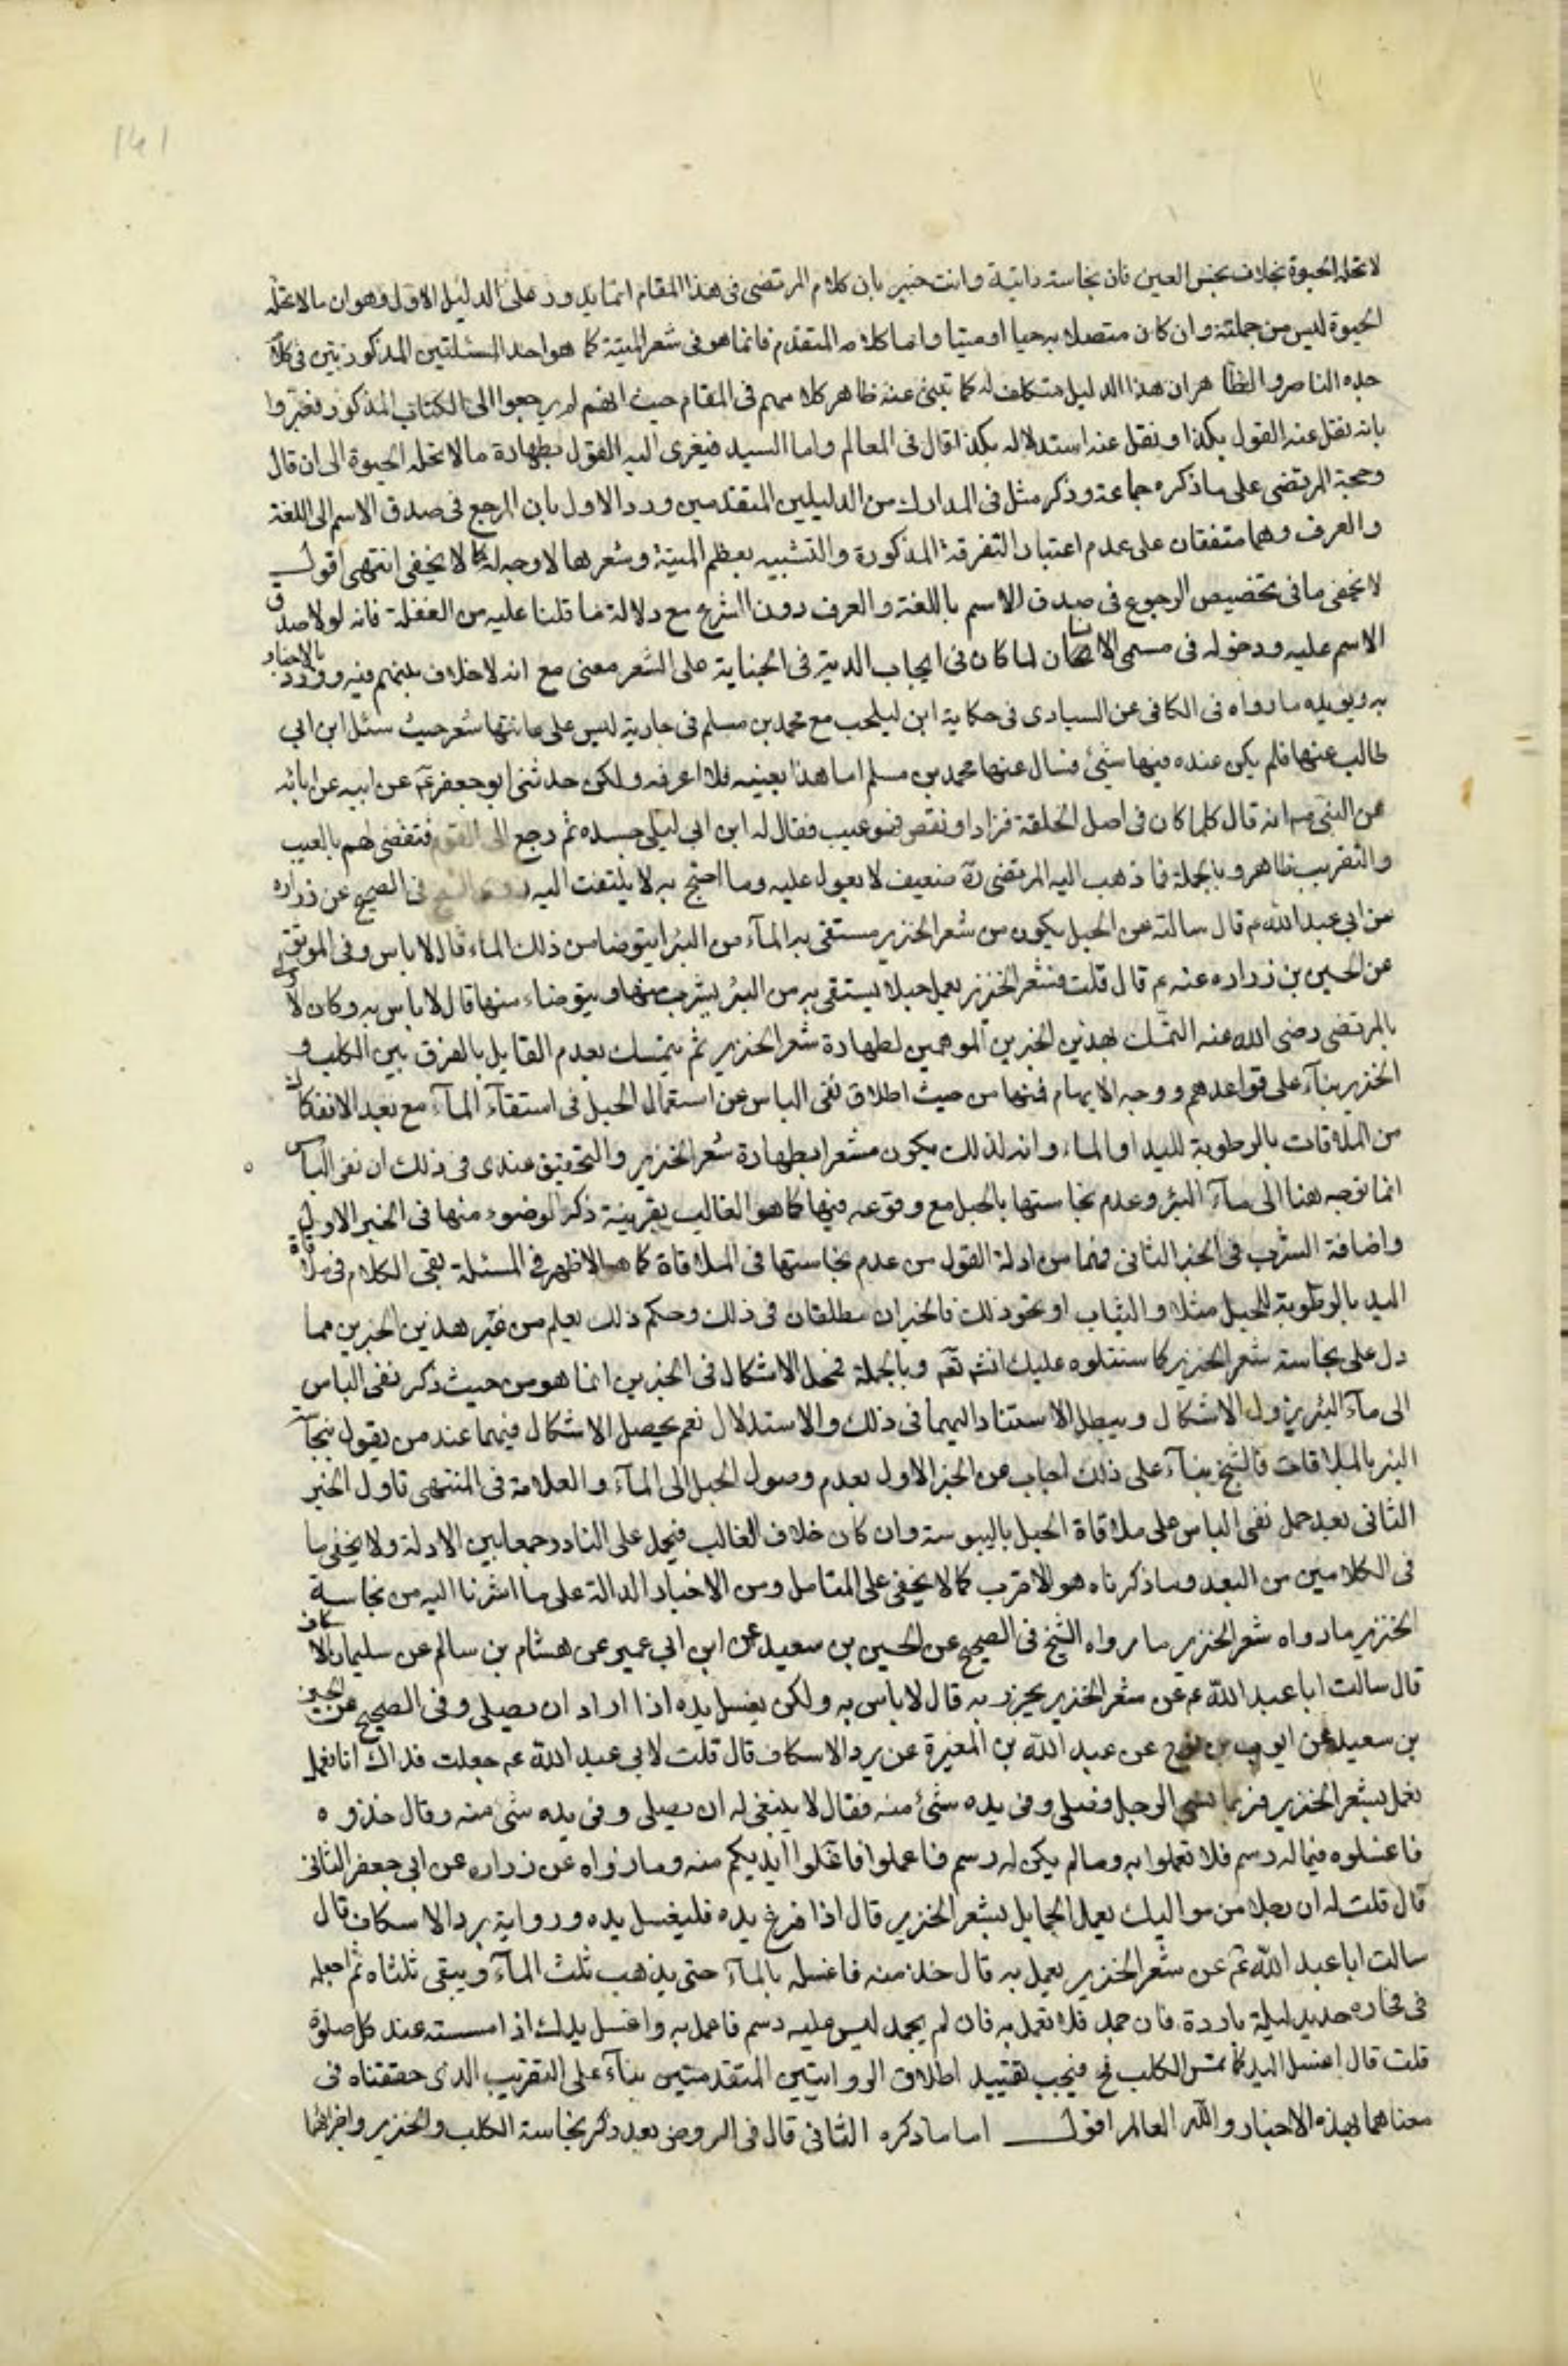 141
لا تحله الحيوة بخلاف نجس العين فان نجاسته ذاتية وانت خبير بان كلام المرتضى فى هذا المقام انما يدور على الدليل الاول وهو ان ما لا تحله
الحيوة ليس من جملته وان كان متصلا به حيا او ميتا واما كلامه المتقدم فانما هو فى شعر الميتة كما هو احد المسئلتين المذكورتين فى كلام
جده الناصر والظاهر ان هذا الدليل متكلف له كما تنبئ عنه ظاهر كلامهم فى المقام حيث انهم لم يرجعوا الى الكتاب المذكور فعبروا
بانه نقل عنه القول بكذا ونقل عنه استدلاله بكذا قال فى المعالم واما السيد فيعزى اليه القول بطهارة ما لا تحله الحيوة الى ان قال
وحجة المرتضى على ما ذكره جماعة وذكر مثل فى المدارك من الدليلين المتقدمين ورد الاول بان المرجع فى صدق الاسم الى اللغة
والعرف وهما متفقان على عدم اعتبار التفرقة المذكورة والتشبيه بعظم الميتة وشعرها لا وجه له كما لا يخفى انتهى اقول
لا يخفى ما فى تخصيص الرجوع فى صدق الاسم باللغة والعرف دون الشرع مع دلالة ما تلنا عليه من الغفلة فانه لولا صدق
الاسم عليه ودخوله فى مسمى الانسان لما كان فى ايجاب الدية فى الجناية على الشعر معنى مع انه لا خلاف بينهم فيه وورود الاخبار
به ويؤيده ما رواه فى الكافى عن السيارى فى حكاية ابن ليلى مع محمد بن مسلم فى جارية ليس على عانتها شعر حيث سئل ابن ابى
طالب عنها فلم يكن عنده فيها شئ فسال عنها محمد بن مسلم اما هذا بعينه فلا اعرفه ولكن حدثنى ابو جعفر عم عن ابيه عن ابائه
عن النبى ص انه قال كلما كان فى اصل الخلقة فزاد او نقص فهو عيب فقال له ابن ابى ليلى حسبك ثم رجع الى القوم فقضى لهم بالعيب
والتقريب ظاهر وبالجملة فما ذهب اليه المرتضى ره ضعيف لا يعول عليه وما احتج به لا يلتفت اليه روى الشيخ فى الصحيح عن زراره
عن ابى عبد الله ع قال سالته عن الحبل يكون من شعر الخنزير مستقى به المآء من البئر ايتوضا من ذلك الماء قال لا باس وفى الموثق
عن الحسين بن زراره عنه ع قال قلت فشعر الخنزير يعمل حبلا يستقى به من البئر يشرب منها ويتوضاء منها قال لا باس به وكان
بالمرتضى رضى الله عنه التمسك بهذين الخبرين الموهمين لطهارة شعر الخنزير ثم يتمسك بعدم القايل بالفرق بين الكلب و
الخنزير بنآء على قواعدهم ووجه الايهام فيهما من حيث اطلاق نفى الباس عن استعمال الحبل فى استقآء المآء مع بعد الانفكاك
من الملاقات بالرطوبة لليد او الماء وانه لذلك يكون مشعرا بطهارة شعر الخنزير والتحقيق عندى فى ذلك ان نفى الباس
انما توجه هنا الى مآء البئر وعدم نجاستها بالحبل مع وقوعه فيها كما هو الغالب بقرينة ذكر الوضوء منها فى الخبر الاول
واضافة الشرب فى الخبر الثانى فهما من ادلة القول من عدم نجاستها فى الملاقاة كما هو الاظهر فى المسئلة بقى الكلام فى ملاقاة
اليد بالرطوبة للحبل مثلا والثياب او نحو ذلك فالخبران مطلقان فى ذلك وحكم ذلك يعلم من غير هذين الخبرين مما
دل على نجاسة شعر الخنزير كما سنتلوه عليك انشه تعم وبالجملة فمحل الاشكال فى الخبرين انما هو من حيث ذكر نفى الباس
الى مآء البئر يزول الاشكال ويبطل الاستناد اليهما فى ذلك والاستدلال نعم يحصل الاشكال فيهما عند من يقول بنجآسة
البئر بالملاقات فالشيخ بنآء على ذلك اجاب عن الخبر الاول بعدم وصول الحبل الى المآء والعلامة فى المنتهى تاول الخبر
الثانى بعد حمل نفى الباس على ملاقاة الحبل باليبوسة وان كان خلاف الغالب فيحمل على النادر وجمعا بين الادلة ولا يخفى ما
فى الكلامين من البعد وما ذكرناه هو الاقرب كما لا يخفى على المتامل ومن الاخبار الدالة على ما اشرنا اليه من نجاسة
الخنزير ما رواه شعر الخنزير ما رواه الشيخ فى الصحيح عن الحسين بن سعيد عن ابن ابى عمير عن هشام بن سالم عن سليمان الاسكاف
قال سالت ابا عبد الله ع عن شعر الخنزير يحرز به قال لا باس به ولكن يغسل يده اذا اراد ان يصلى وفى الصحيح عن الحسين
بن سعيد عن ايوب بن نوح عن عبد الله بن المغيرة عن برد الاسكاف قال قلت لابى عبد الله ع جعلت فداك انا نعمل
نعمل بشعر الخنزير فربما نسى الرجل فصلى وفى يده شئ منه فقال لا ينبغى له ان يصلى وفى يده شئ منه وقال خذوه
فاغسلوه فما له دسم فلا تعملوا به وما لم يكن له دسم فاعملوا فاغسلوا ايديكم منه وما رواه عن زراره عن ابى جعفر الثانى
قال قلت له ان رجلا من مواليك يعمل الحمايل بشعر الخنزير قال اذا فرغ يده فليغسل يده ورواية برد الاسكاف قال
سالت ابا عبد الله عم عن شعر الخنزير يعمل به قال خذ منه فاغسله بالمآء حتى يذهب ثلث المآء ويبقى ثلثاه ثم اجعله
فى فخاره جديد ليلة باردة، فان جمد فلا تعمل به فان لم يجمد ليس عليه دسم فاعمل به واغسل يدك اذا مسسته عند كل صلوة
قلت قال اغسل اليد كما تمس الكلب فح فيجب تقييد اطلاق الروايتين المتقدمتين بنآء على التقريب الذى حققناه فى
معناهما بهذه الاخبار والله العالم اقول اما ما ذكره الثانى قال فى الروض بعد ذكر نجاسة الكلب والخنزير واجزائهما